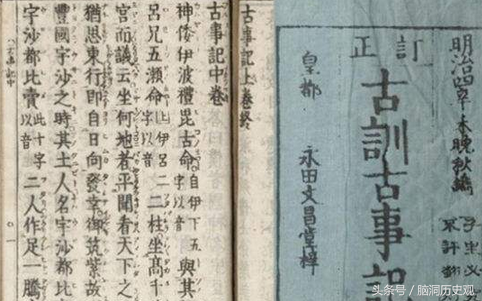 明治四辛未晩秋
訂正
古訓古事記
皇都 永田文昌堂梓
古事記上卷終
古事記中卷
神倭伊波禮毘古命自伊下五字以音與其
呂兄五瀬命上伊呂二字以音二柱坐高千
宮而議云坐何地者平聞看天下之
猶思東行即自日向發幸御筑紫故
豐國宇沙之時其土人名宇沙都比
宇沙都比賣此十字以音二人作足一騰
头条号 / 脑洞历史观